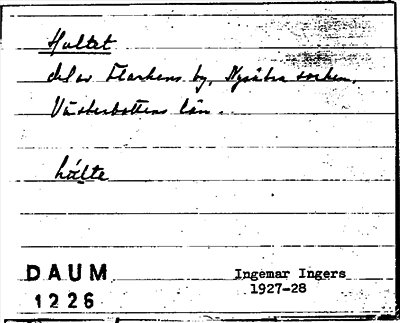 Hultet
del av Flarkens by, Nysätra socken,
Västerbottens län.
hálte
DAUM
1226
Ingemar Ingers
1927-28